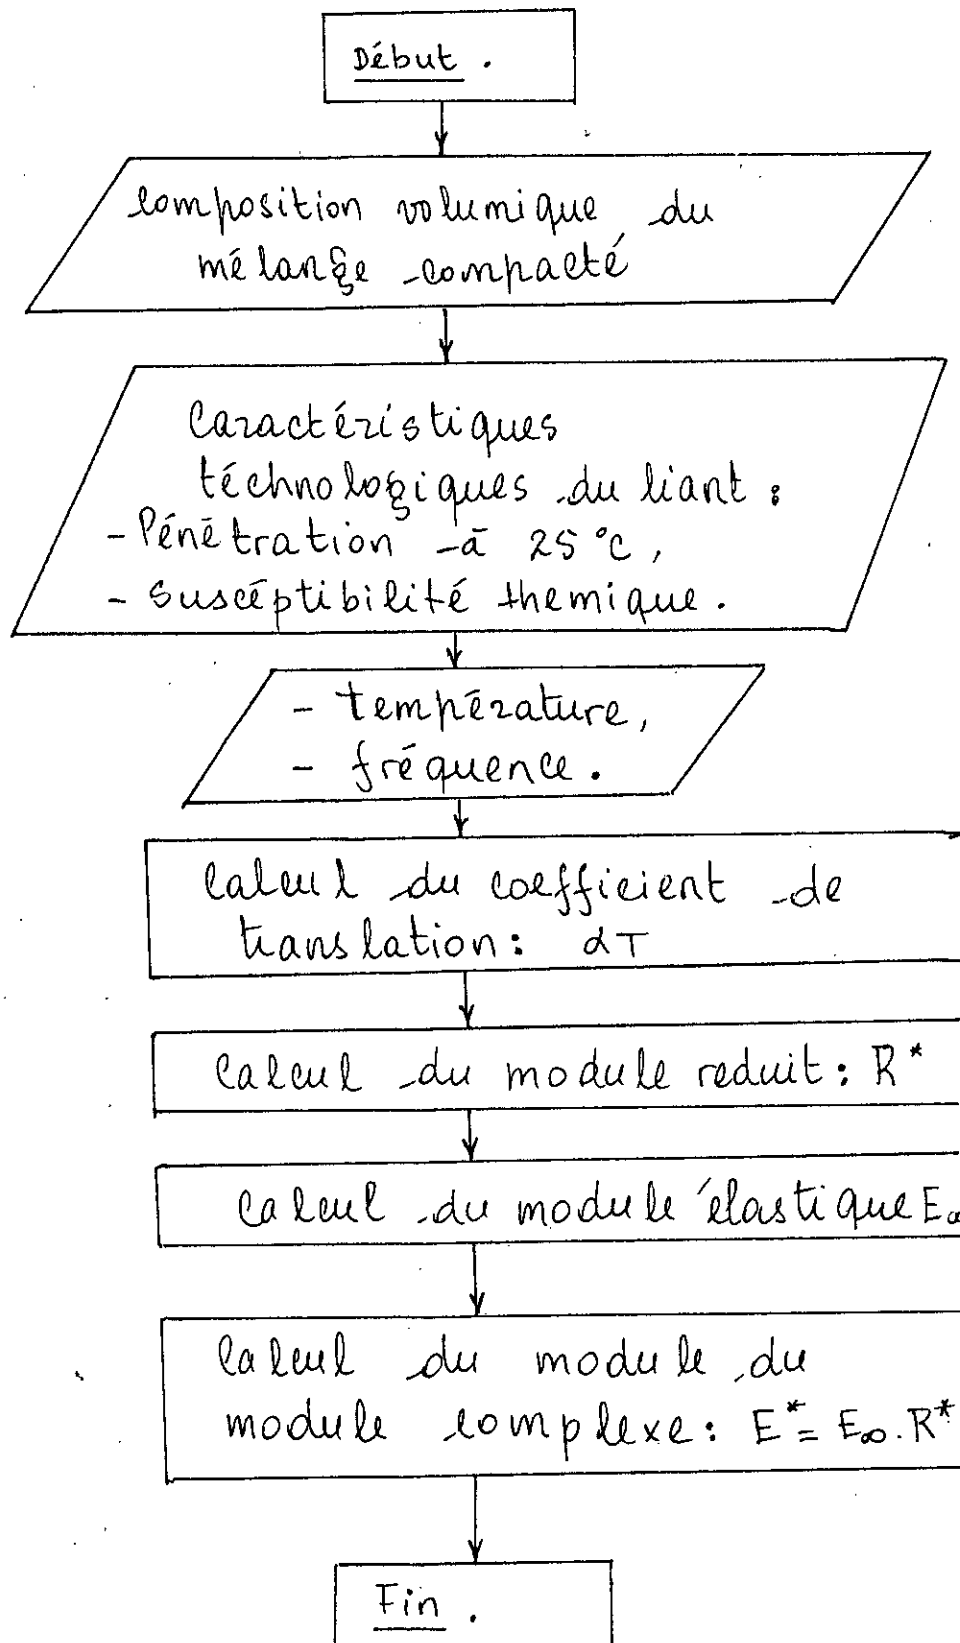 Début .
Composition volumique du
mélange compacté
Caractéristiques
téchnologiques du liant :
- Pénétration à 25 °C,
- Suscéptibilité themique.
- température,
- fréquence.
Calcul du coefficient de
translation : αT
Calcul du module reduit : R*
Calcul du module élastique E∞
Calcul du module du
module complexe : E* = E∞ . R*
Fin .